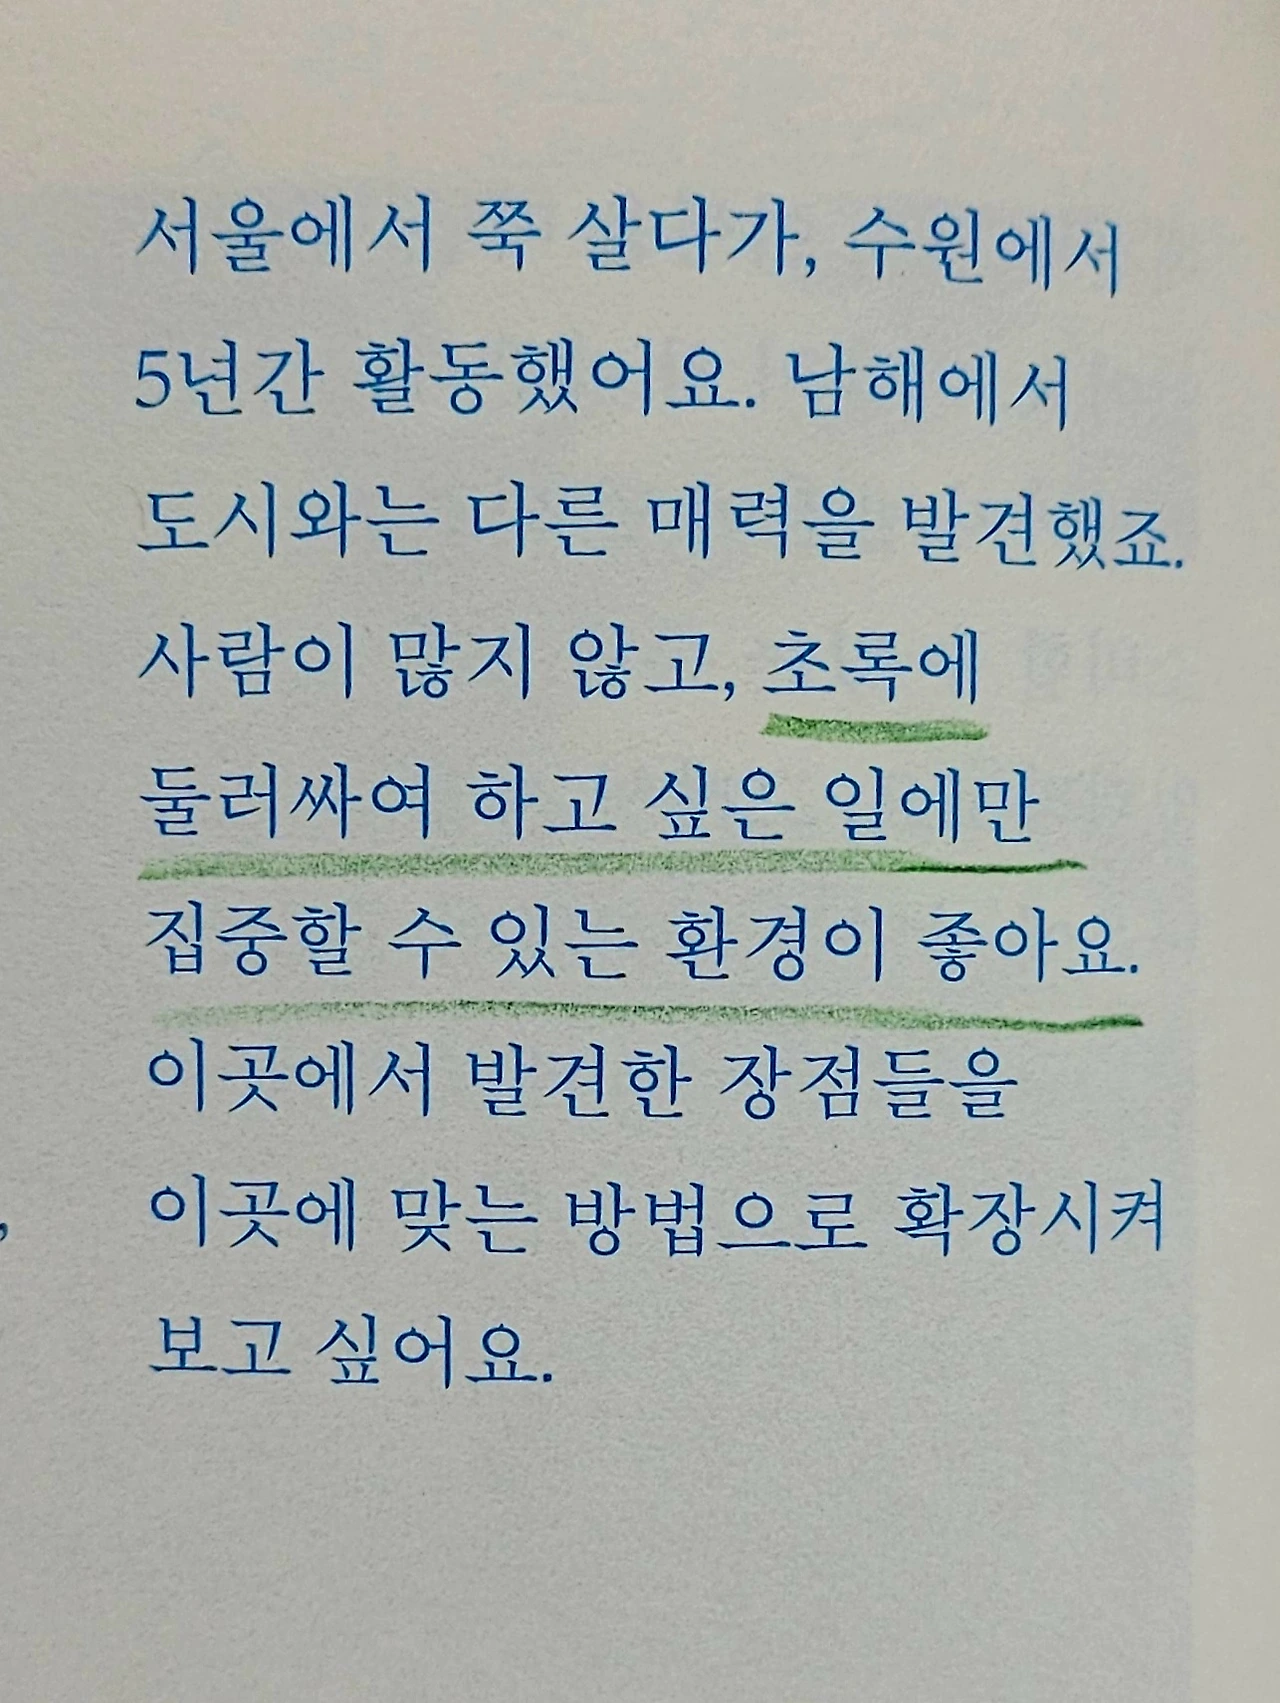 서울에서 쭉 살다가, 수원에서
5년간 활동했어요. 남해에서
도시와는 다른 매력을 발견했죠.
사람이 많지 않고, 초록에
둘러싸여 하고 싶은 일에만
집중할 수 있는 환경이 좋아요.
이곳에서 발견한 장점들을
이곳에 맞는 방법으로 확장시켜
보고 싶어요.